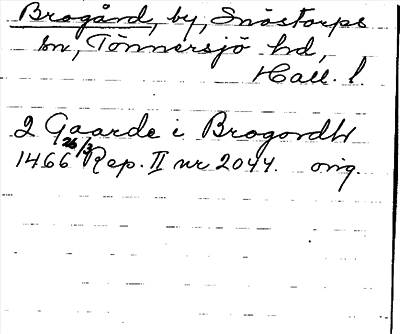 Brogård, by, Snöstorps
sn, Tönnersjö hd,
Hall. l
2 Gaarde i Brogordh
1466 26/3 Rep. II nr 2044. orig.